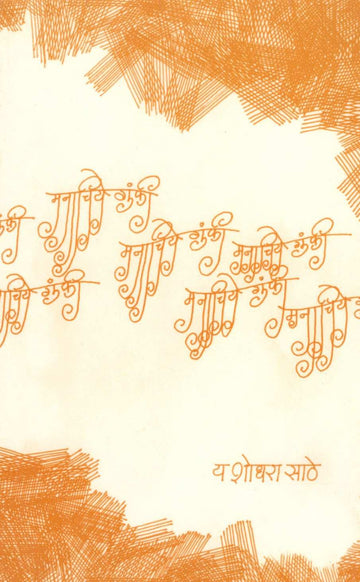 मनाचिये गुंफी
गुंफी मनाचिये गुंफी मनाचिये गुंफी
मनाचिये गुंफी मनाचिये गुंफी
मनाचिये
यशोधरा साठे